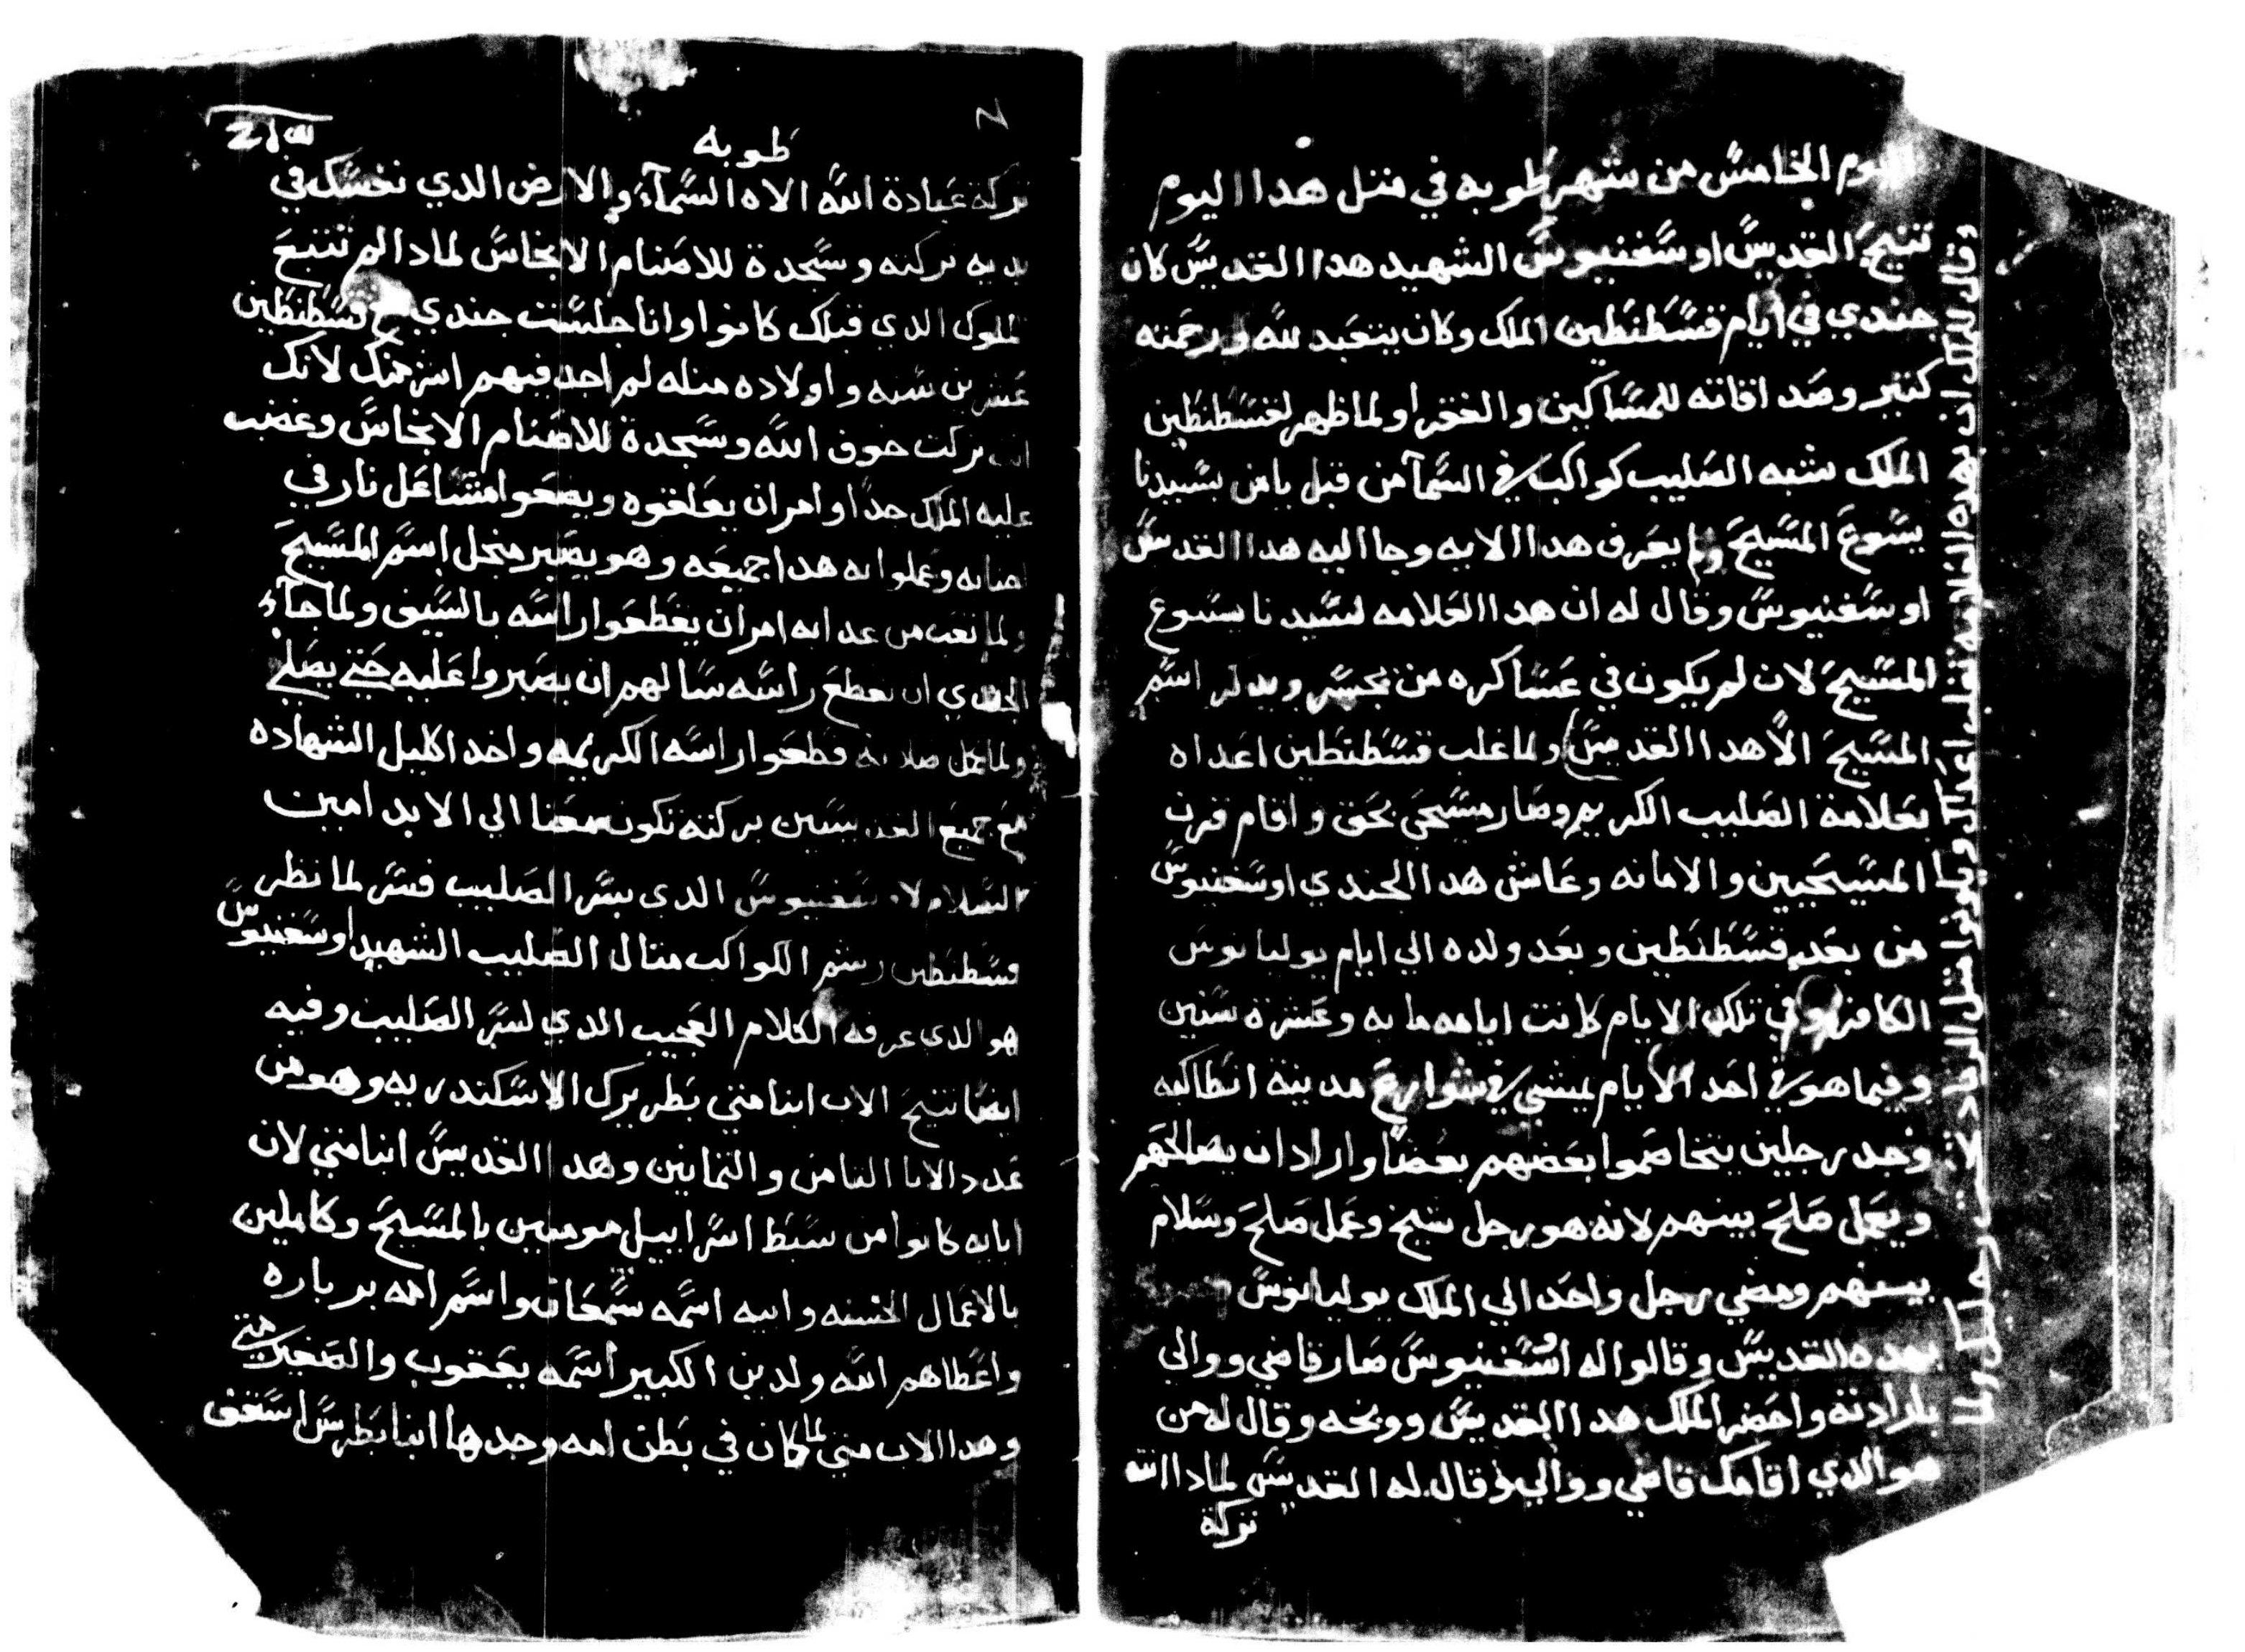 اليوم الخامس من شهر طوبه في مثل هدا اليوم
تنيح القديس اوسغنيوس الشهيد هدا القديس كان
جندي في ايام قسطنطين الملك وكان يتعبد لله ورحمته
كتير وصداقاته للمساكين والفقرا ولما ظهر لقسطنطين
الملك شبه الصليب كواكب في السمآ من قبل سيدنا
يسوع المسيح ولم يعرف هدا الايه وجا اليه هدا القديس
اوسغنيوس وقال له ان هدا العلامه لسيدنا يسوع
المسيح لان لم يكون في عساكره من يجسر ويدكر اسم
المسيح الا هدا القديس ولما غلب قسطنطين اعداه
بعلامة الصليب الكريم وصار مسيحي بحق واقام قرن
المسيحيين والامانه وعاش هدا الجندي اوسغنيوس
من بعد قسطنطين وبعد ولده الي ايام يوليانوس
الكافر وفي تلك الايام كانت ايامه مايه وعشرة سنين
وفيما هو في احد الايام يمشي في شوارع مدينة انطاكيه
وجد رجلين يتخاصموا بعضهم بعضا واراد ان يصالحهم
ويعمل صلح بينهم لانه هو رجل شيخ وعمل صلح وسلام
بينهم ومضي رجل واحد الي الملك يوليانوس
بهده القديس وقالوا له اوسغنيوس صار قاضي ووالي
بارادته واحضر الملك هدا القديس ووبخه وقال له من
هو الدي اقامك قاضي ووالي وقال له القديس لمادا انته
تركة
وقال للملك ان بهده العلامه تغلب اعداك ويكونوا مثل الرماد
طوبه
تركة عبادة الله الاه السمآء والارض الدي نفسك في
يديه تركته وسجدة للاصنام الانجاس لمادا لم تتبع
الملوك الدي قبلك كانوا وانا جلست جندي مع قسطنطين
عشرين سنه واولاده مثله لم اجد فيهم اشر منك لانك
انت تركت خوف الله وسجدة للاصنام الانجاس وغضب
عليه الملك جدا وامر ان يعلقوه ويضعوا مشاعل نار في
اجنابه وعملوا به هدا جميعه وهو يصبر من اجل اسم المسيح
ولما تعب من عدابه امر ان يقطعوا راسه بالسيف ولما جآء
الجندي ان يقطع راسه سالهم ان يصبروا عليه حتي يصلي
ولما كمل صلاته قطعوا راسه الكريمه واخد اكليل الشهاده
مع جميع القديسين بركته تكون معنا الي الابد امين
السلام لاوسغنيوس الدي بشر الصليب فسر لما نظر
قسطنطين رسم الكواكب متال الصليب الشهيد اوسغنيوس
هو الدي عرفه الكلام العجيب الدي لسر الصليب وفيه
ايضا تنيح الاب انبا متي بطريرك الاسكندريه وهو من
عدد الابا التامن والتمانين وهدا القديس انبا متي لان
ابايه كانوا من سبط اسراييل مومنين بالمسيح وكاملين
بالاعمال الحسنه وابيه اسمه سمعان واسم امه برباره
واعطاهم الله ولدين الكبير اسمه يعقوب والصغير متي
وهدا الاب متي لما كان في بطن امه وجدها انبا بطرس اسقف